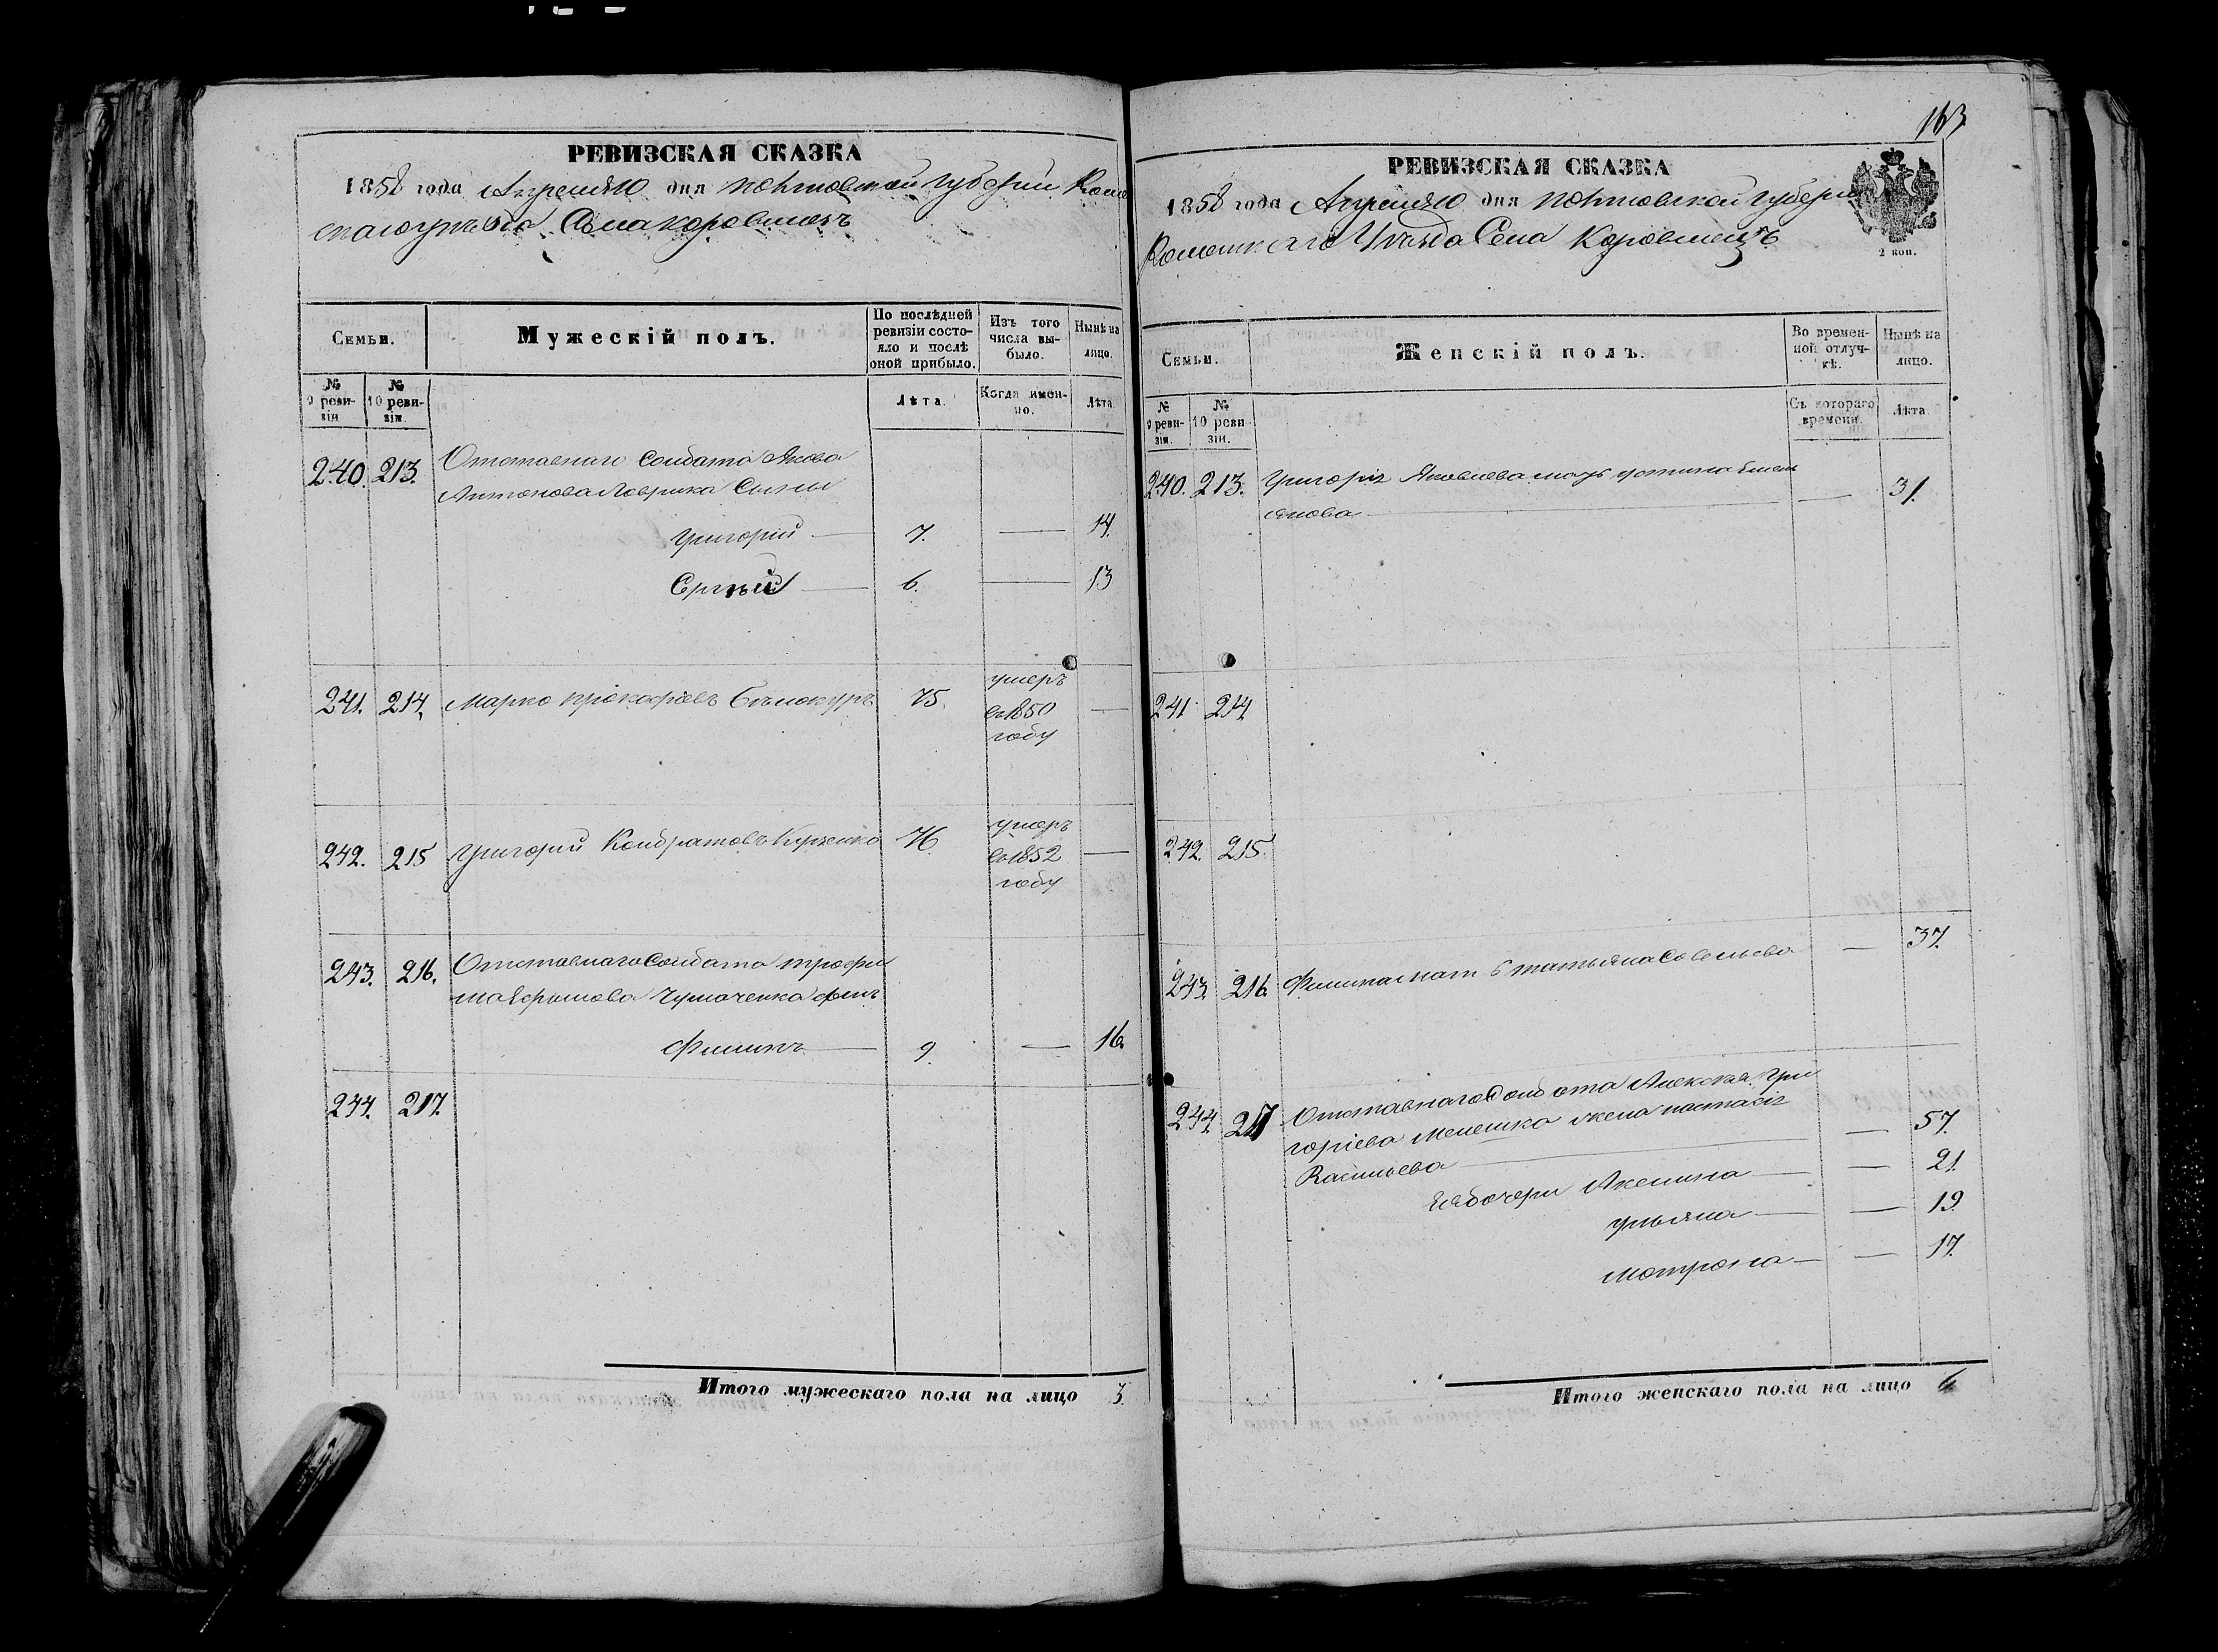 163
РЕВИЗСКАЯ СКАЗКА
1858 года Апреля 10 дня Полтавской Губерніи
Села
Семьи.
Мужескій полъ.
По послѣдней ревизіи состояло и послѣ оной прибыло.
Изъ того числа выбыло.
Нынѣ на лицо.
№ 9 ревизіи
№ 10 ревизіи.
Лѣта.
Когда именно.
Лѣта.
240. 213. Отставнаго Солдата Якова
Антонова Лаврика Сыны
Григорій 7. — 14.
Сергѣй 6. — 13
241. 214. Марко Прокофіевъ Бѣлокуръ 75. умеръ —
въ 1850
году
242. 215 Григорій Кондратовъ 76. умеръ —
въ 1852
году
243. 216. Отставнаго Солдата Трофи
ма Ефимова Чумаченка сынъ
Филипъ 9. — 16.
244. 217.
Итого мужескаго пола на лицо 3.
РЕВИЗСКАЯ СКАЗКА
1858 года Апреля 10 дня Полтавской Губерніи
Уѣзда Села
2 коп.
Семьи.
Женскій полъ.
Во временной отлучкѣ.
Нынѣ на лицо.
№ 9 ревизіи.
№ 10 ревизіи.
Съ котораго времени.
Лѣта.
240. 213. Григорія Яковлева мать Устина Емель
янова — 31.
241. 214.
242. 215.
243. 216. Филипа мать Татьяна Савельева — 37.
244. 217 Отставнаго Солдата Алексея Гри
горіева жена Настасія
Васильева — 57.
дочери Акелина — 21.
Ульяна — 19.
Мотрона — 17.
Итого женскаго пола на лицо 6